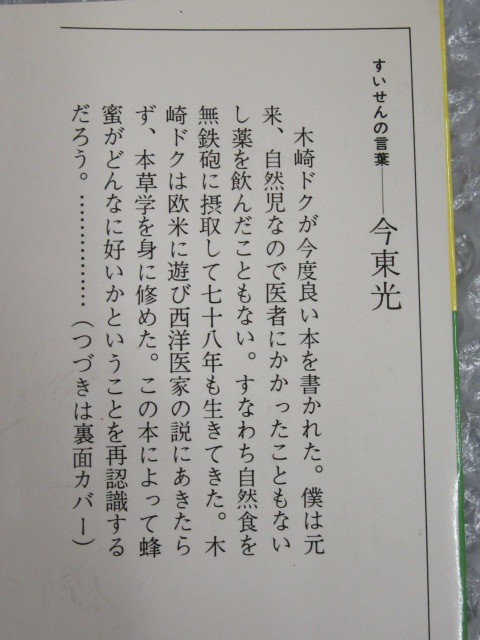 すいせんの言葉——今東光
木崎ドクが今度良い本を書かれた。僕は元
来、自然児なので医者にかかったこともない
し薬を飲んだこともない。すなわち自然食を
無鉄砲に摂取して七十八年も生きてきた。木
崎ドクは欧米に遊び西洋医家の説にあきたら
ず、本草学を身に修めた。この本によって蜂
蜜がどんなに好いかということを再認識する
だろう。………………(つづきは裏面カバー)